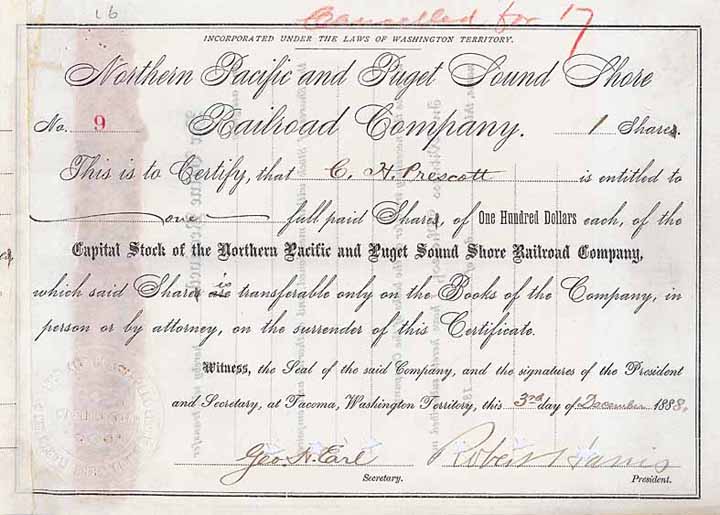 16
Cancelled for 17
INCORPORATED UNDER THE LAWS OF WASHINGTON TERRITORY.
Northern Pacific and Puget Sound Shore
No. 9 Railroad Company. 1 Share
This is to Certify, that C. H. Prescott is entitled to
one full paid Share, of One Hundred Dollars each, of the
Capital Stock of the Northern Pacific and Puget Sound Shore Railroad Company,
which said Share is transferable only on the Books of the Company, in
person or by attorney, on the surrender of this Certificate.
Witness, the Seal of the said Company, and the signatures of the President
and Secretary, at Tacoma, Washington Territory, this 3rd day of December 1888.
Geo. H. Earl Robert Harris
Secretary. President.